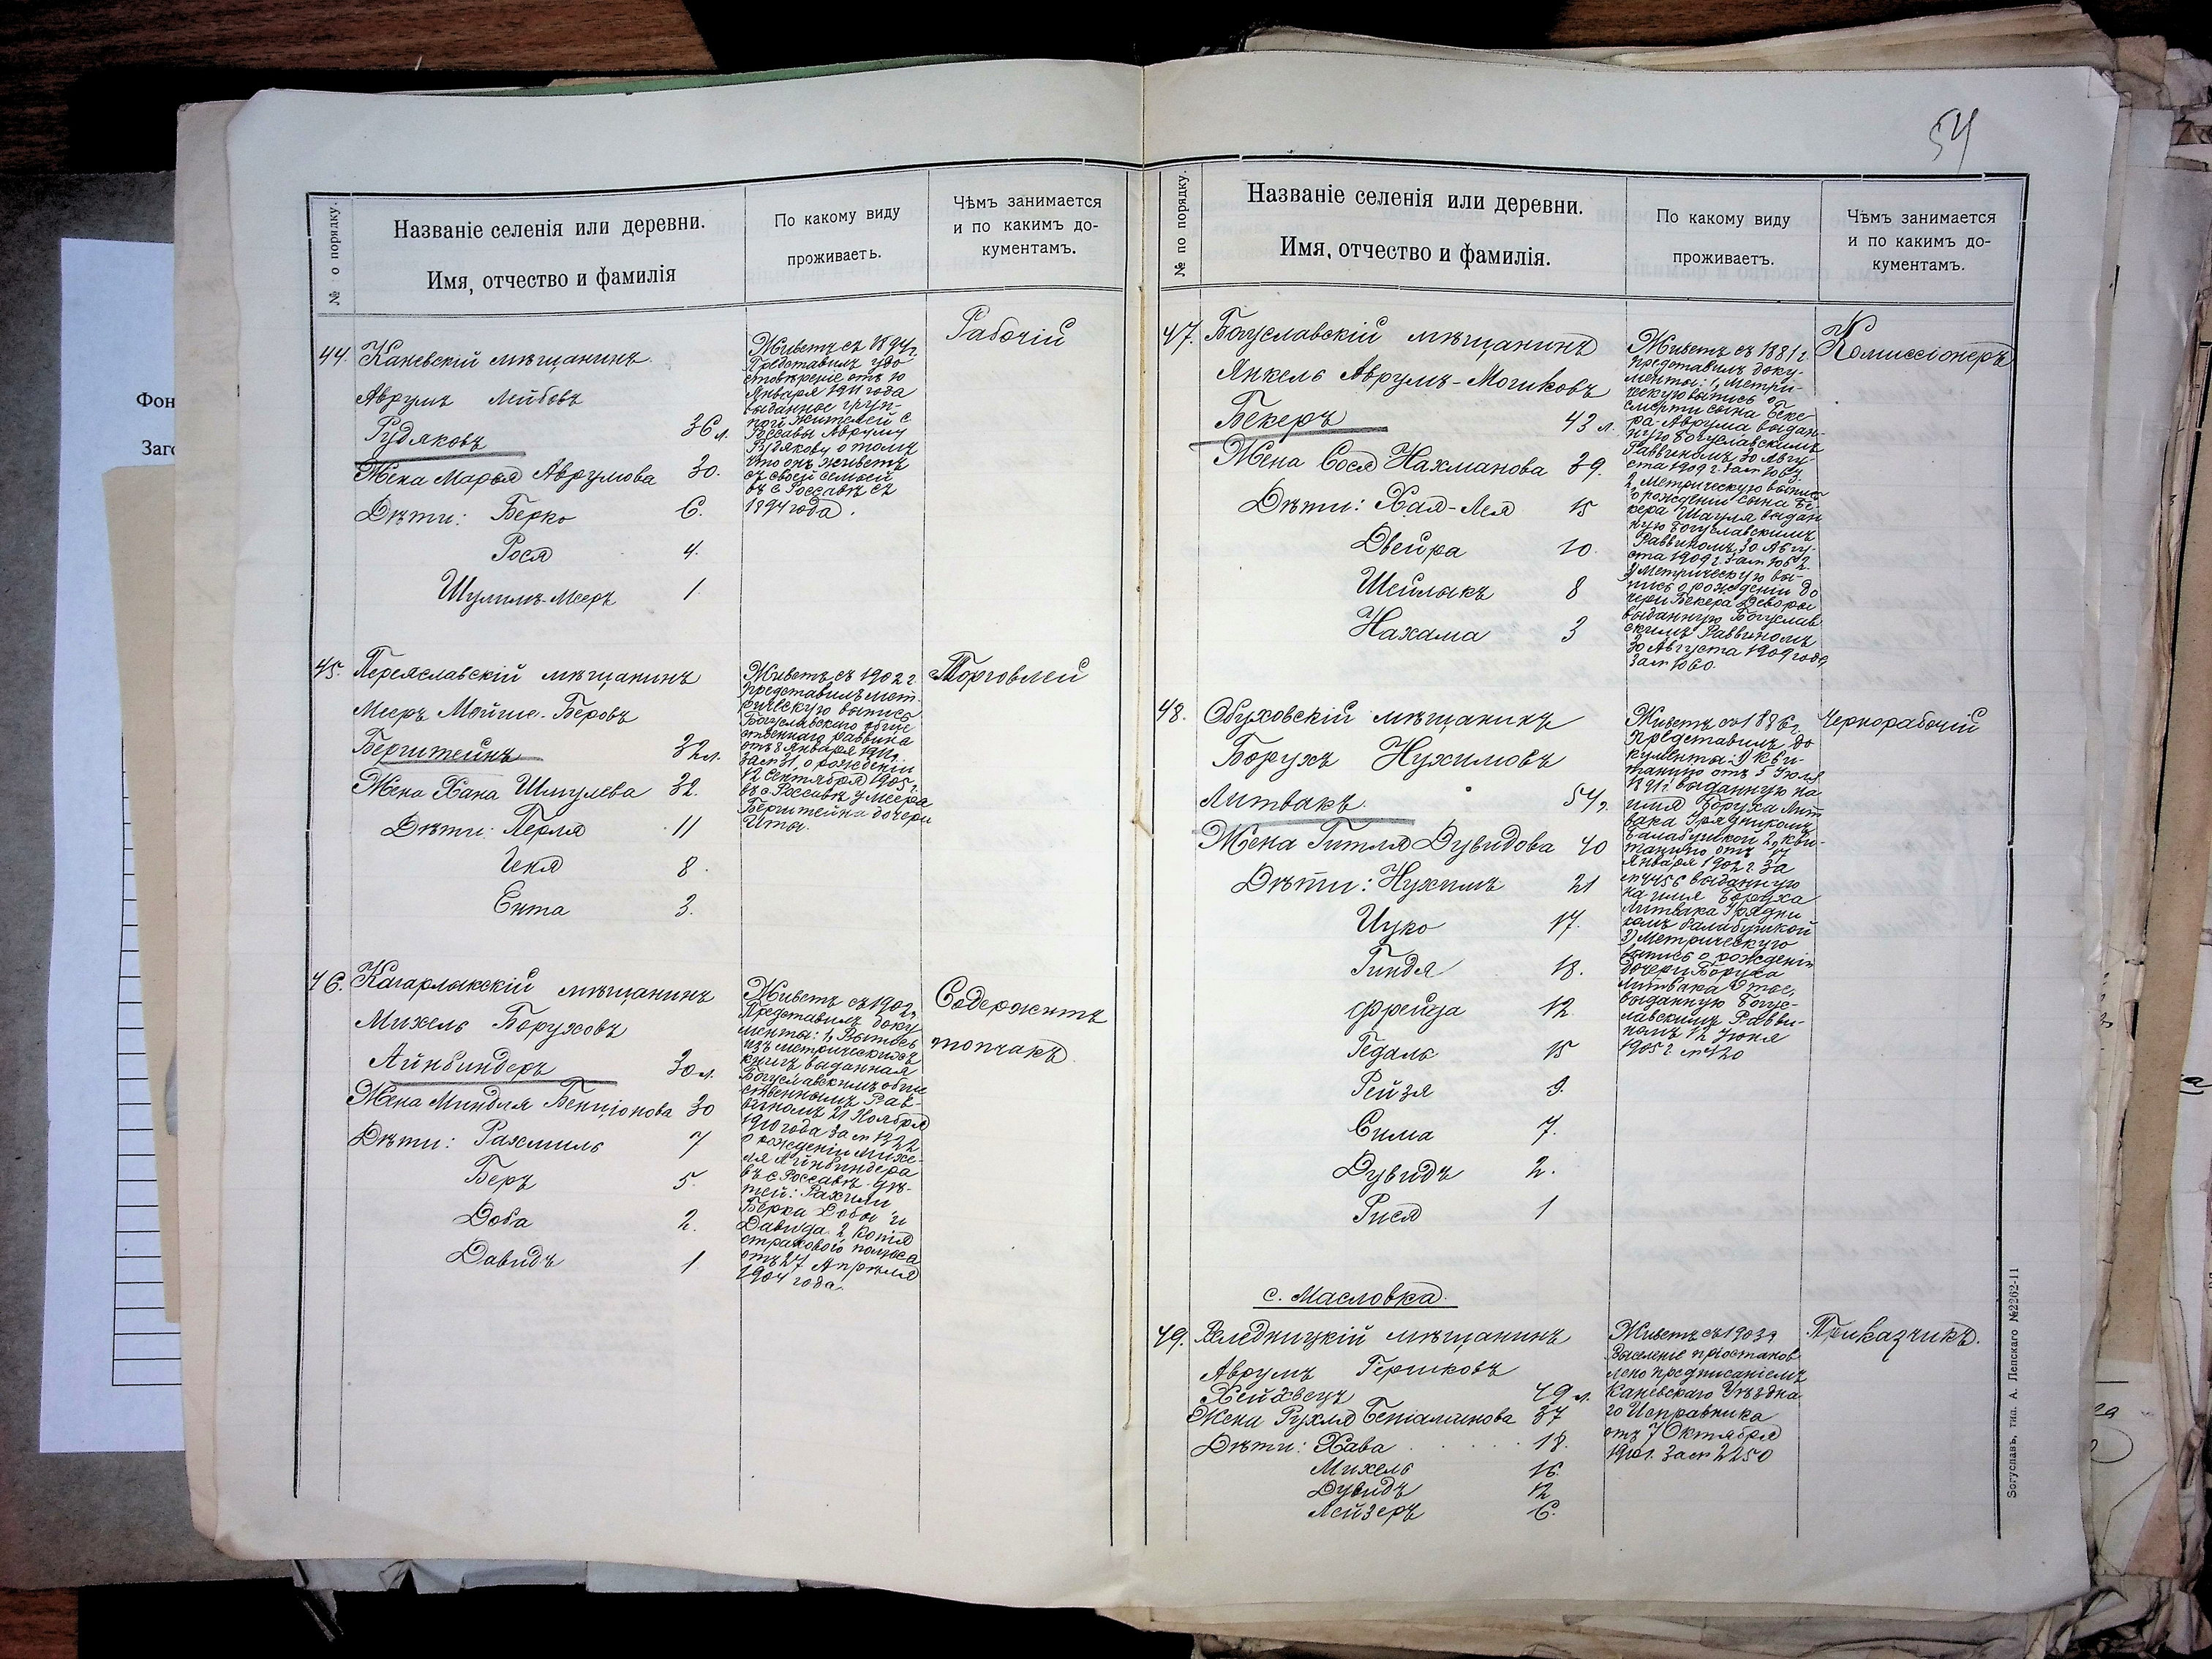 Фон
Заг
№ по порядку.
Названіе селенія или деревни.
Имя, отчество и фамилія
По какому виду
проживаетъ.
Чѣмъ занимается
и по какимъ до-
кументамъ.
44. Каневскій мѣщанинъ
Аврумъ Лейбовъ
Рудяковъ 36 л.
Жена Марья Аврумова 30.
Дѣти: Берко 6.
Рося 4.
Шулимъ-Меер 1
Живетъ съ 1894 г.
Представилъ удо
стовѣреніе отъ 10
Января 1911 года
выданное груп-
пой жителей с
Россавы Авруму
Рудякову о томъ
что онъ живетъ
съ своей семьей
въ с Россавѣ съ
1894 года.
Рабочій
45. Переяславскій мѣщанинъ
Мееръ Мойше-Беровъ
Бергитейнъ 32 л.
Жена Хана Шмулева 32.
Дѣти: Перля 11
Икя 8.
Ента 3.
Живетъ съ 1902 г
представилъ мет
рическую выпись
Богуславского обще
ственнаго раввина
отъ 8 Января 1911 г.
за № 31, о рожденіи
12 Сентября 1905 г.
въ с Россавѣ у Меера
Бергитейна дочери
Иты.
Торговлей
46. Кагарлыкскій мѣщанинъ
Михель Боруховъ
Айнбиндеръ 30 л.
Жена Миндля Бенціонова 30
Дѣти: Рахмиль 7
Беръ 5.
Доба 2.
Давидъ 1
Живетъ съ 1902 г
Представилъ доку
менты: 1, Выпись
изъ метрическихъ
книгъ выданная
Богуславскимъ обще
ственнымъ Рав-
виномъ 21 Ноября
1910 года за № 1322
о рожденіи Михе-
ля Айнбиндера
въ с Россавѣ дѣ-
тей: Рахили
Берка Добы и
Давида. 2 Копія
страхового полюса
отъ 27 Апрѣля
1904 года.
Содержитъ
топчакъ.
54
№ по порядку.
Названіе селенія или деревни.
Имя, отчество и фамилія.
По какому виду
проживаетъ.
Чѣмъ занимается
и по какимъ до-
кументамъ.
47. Богуславскій мѣщанинъ
Янкель Аврумъ-Мошковъ
Бекеръ 43 л.
Жена Сося Нахманова 39.
Дѣти: Хая-Лея 15
Двейра 10.
Шейлыкъ 8
Нахама 3
Живетъ съ 1881 г.
представилъ доку-
менты: 1, Метри-
ческую выпись о
смерти сына Беке-
ра-Аврума выдан-
ную Богуславскимъ
Раввиномъ 30 Авгу-
ста 1909 г. за №
2 Метрическую выпись
о рожденіи сына Бе-
кера Шаула выдан
ную Богуславскимъ
Раввиномъ 30 Авгу-
ста 1909 г. за № 1052
3) Метрическую вы-
пись о рожденіи до
чери Бекера Деворы
выданную Богуслав
скимъ Раввиномъ
30 Августа 1909 года
за № 1060.
Комиссіонеръ
48. Обуховскій мѣщанинъ
Борухъ Нухимовъ
Литвакъ. 54 л.
Жена Гитля Дувидова 40
Дѣти: Нухимъ 21
Ицко 17.
Гиндя 18.
Фрейда 12.
Гедаль 15
Рейзя 9.
Сима 7.
Дувидъ 2.
Рися 1
Живетъ со 1886 г.
Представилъ до
кументы 1) Кви-
танцію отъ 5 Июля
1891 г. выданную на
имя Боруха Лит
вака Урядникомъ
Балабушкой 2, кви-
танцію отъ 14
Января 1902 г. за
№ 4456 выданную
на имя Боруха
Литвака Урядни
комъ Балабушкой
3) Метрическую
выпись о рожденіи
дочери Боруха
Литвака Этье,
выданную Богус-
лавскимъ Равви-
номъ 12 Июня
1905 г. № 420
Чернорабочій
с. Масловка.
49. мѣщанинъ
Аврумъ Гершковъ
Хейфецъ 49 л.
Жена Рухля Бенгаминова 37
Дѣти: Хава . . . . . 18.
Михель 16.
Дувидъ 12
Лейзеръ 6.
Живетъ съ 1903 г
Выселеніе пріостанов
лено предписаніемъ
Каневскаго Уѣздна
го Исправника
отъ 7 Октября
1910 г. за № 2250
Приказчикъ.
Богуславъ, тип. А. Лепскаго №2262-11